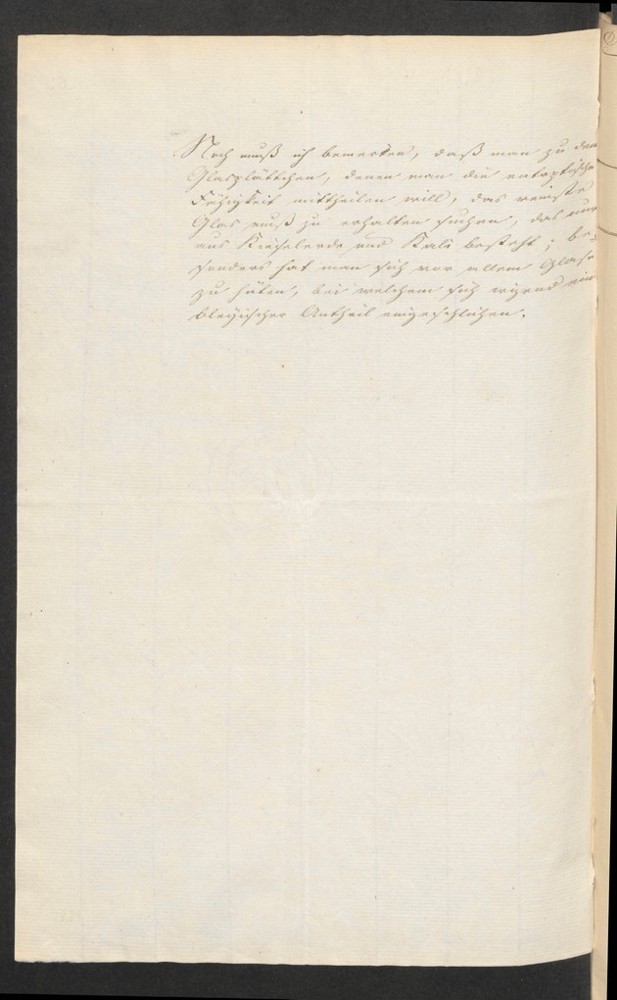 Noch muß ich bemerken, daß man zu den
Glasplättchen, denen man die entoptische
Fähigkeit mittheilen will, das reinste
Glas muß zu erhalten suchen, das nur
aus Kieselerde und Kali besteht; be-
sonders hat man sich vor allem Glase
zu hüten, bei welchem sich irgend ein
bleyischer Antheil eingeschlichen.